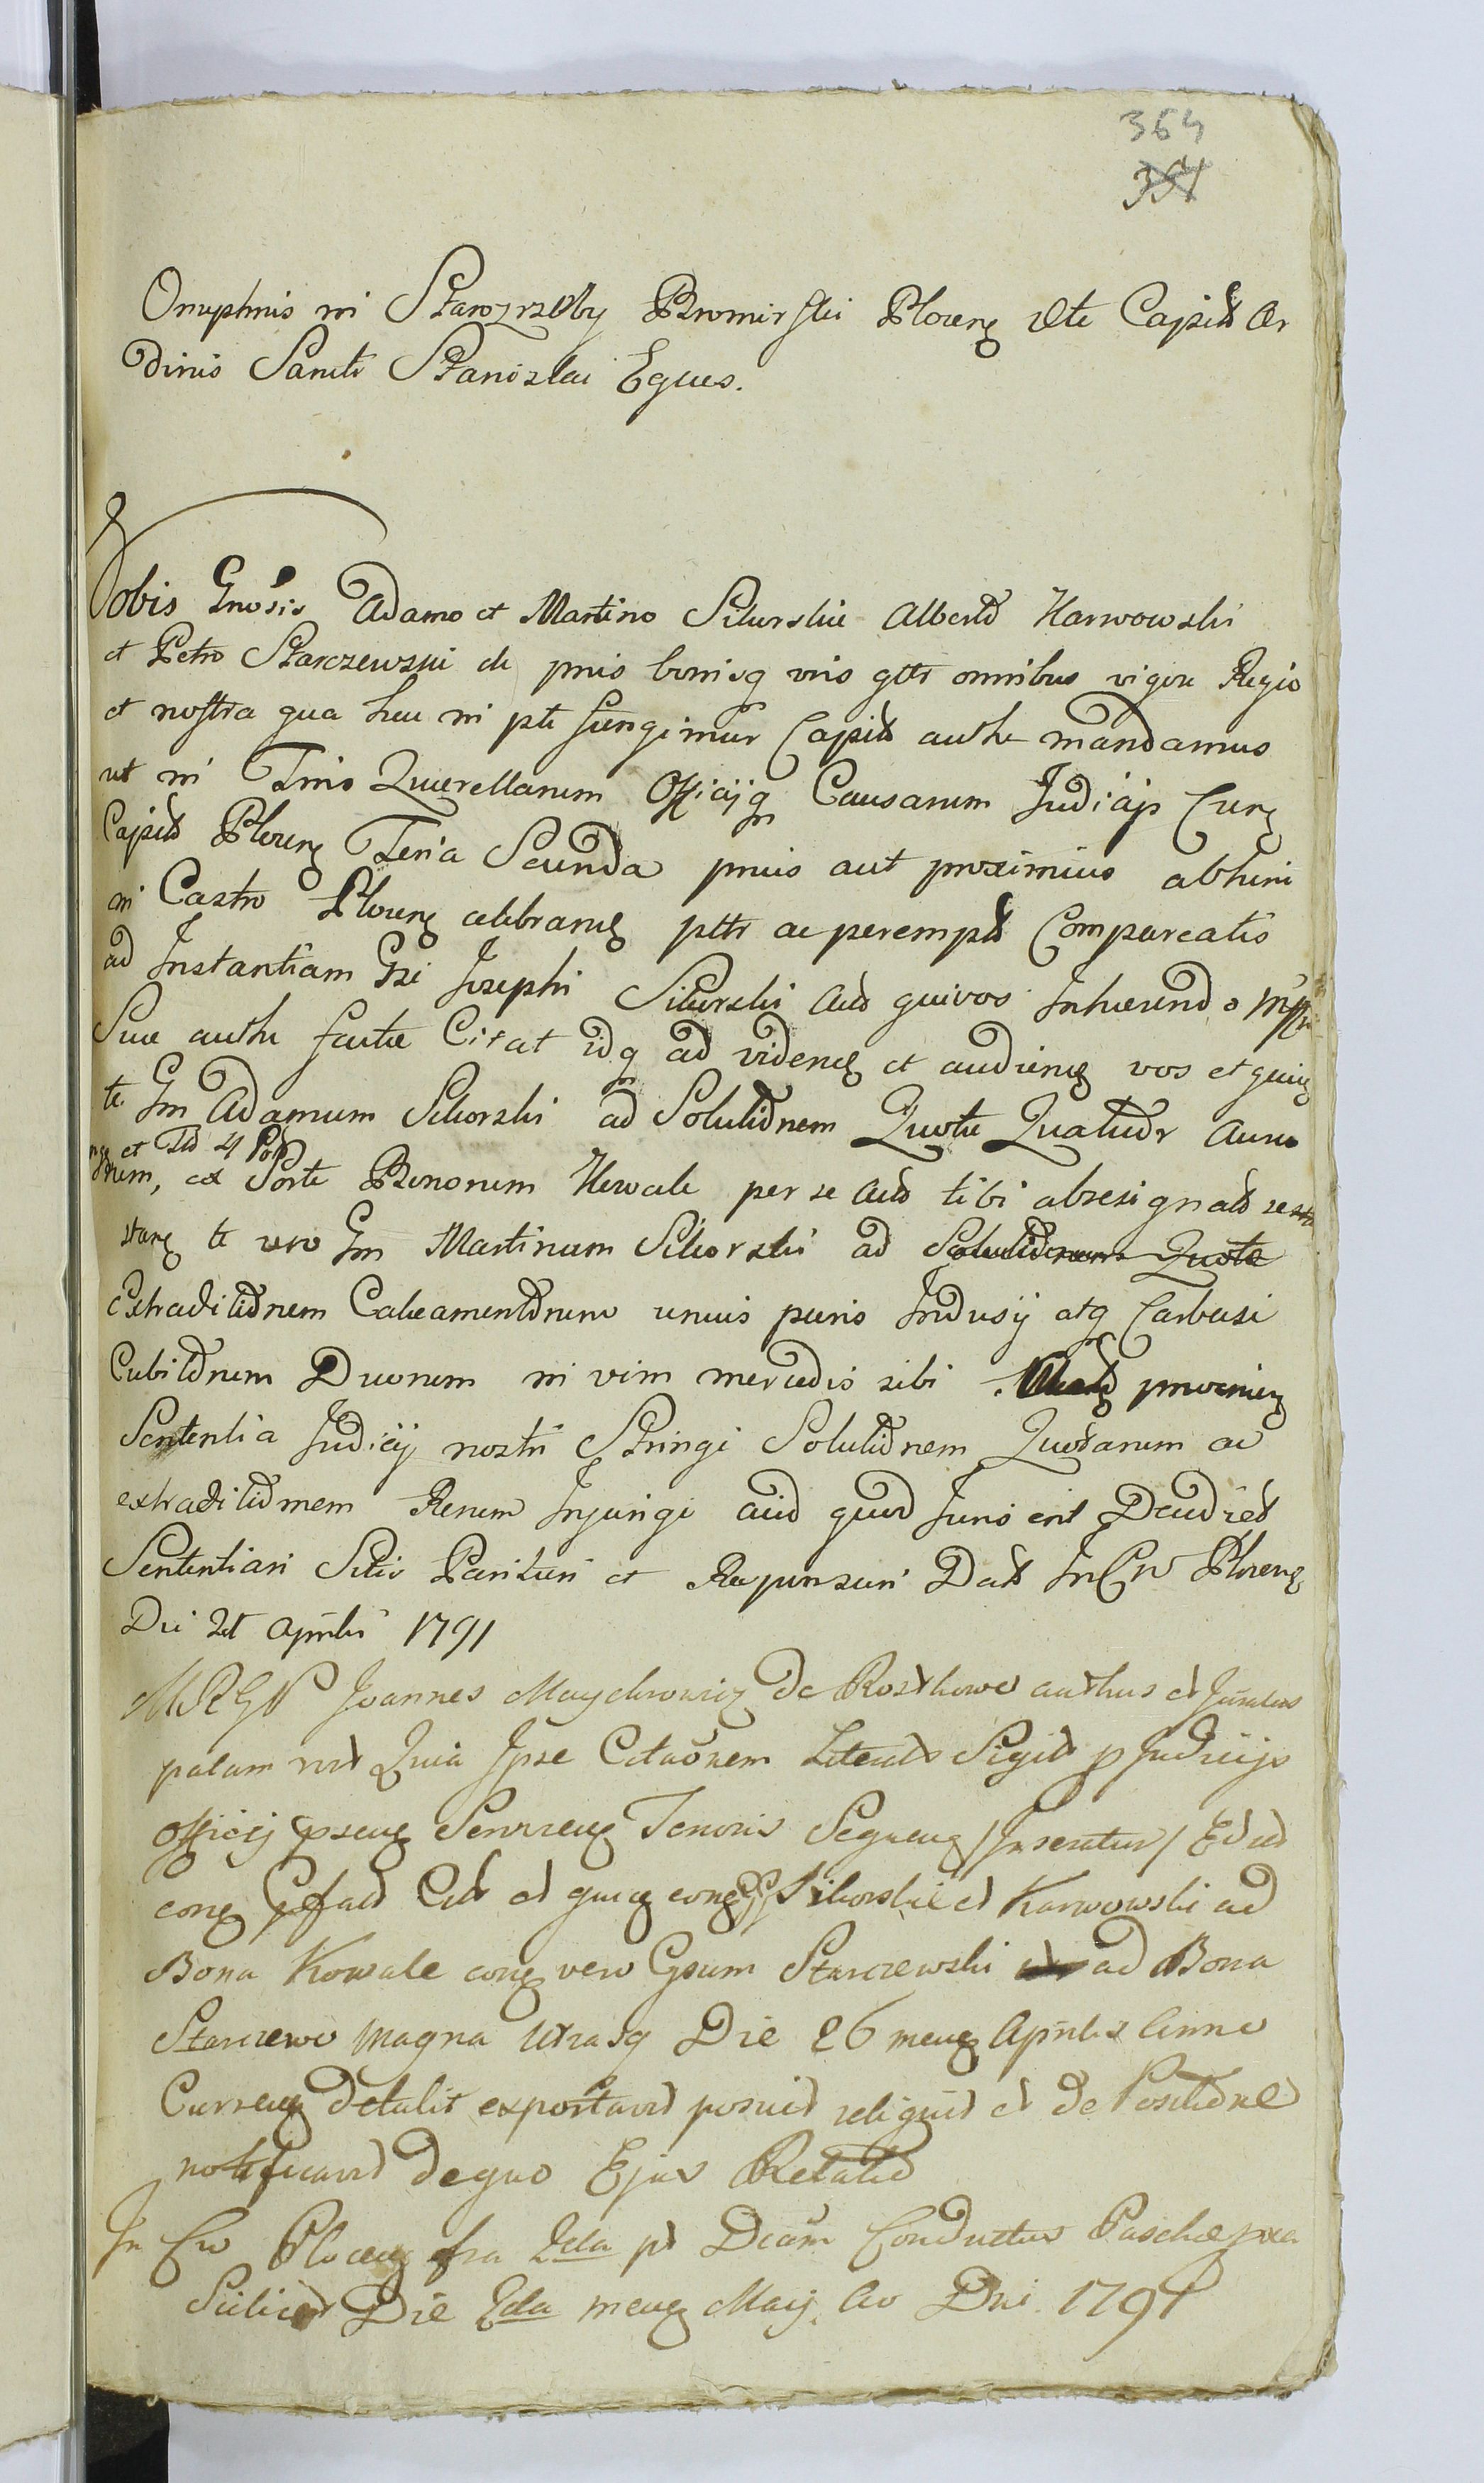 364
354
Onuphrius in Starozrzeby Bromirski Plocen Vte Capits Or
dinis Sancti Stanislai Eques.
Vobis Gnosis Adamo et Martino Sikorskie Alberto Karwowski
et Petro Starczewski de pnis bonisq vris gtlr omnibus vigore Regio
et nostra qua hac in pte fungimur Capits authe mandamus
ut in Tnis Querellarum Officijq Causarum Judicijs Cur
Capits Plocen Feria Secunda pnis aut proximius abhinc
in Castro Plocen celebran pttr ac perempts Compareatis
ad Instantiam Gsi Josephi Sikorski Acts qui vos Inhærendo
Suæ authe factæ Citat idq ad viden et audien vos et quin
te Gm Adamum Sikorski ad Solutionem Quotæ Quatuor Aureo
et Tts 4 Pol
rum, ex Sorte Bonorum Kowale per se Acto tibi abresignats re
stan te vero Gm Martinum Sikorski ad Solutionem Quotæ
extraditionem Calceamentorum unius paris Indusij atq Carbasi
Cubitorum Duorum in vim mercedis sibi provenien
Sententia Judicij nostri Stringi Solutionem Quotarum ac
extraditionem Rerum Injungi aliud quod Juris erit Decidiet
Sententiari Sitis Parituri et Responsuri Dats In Cur Plocen
Die 21 Aprilis 1791
MRGP Joannes Maychrowicz de Rostkowo authus et Juratus
palam rect Quia Ipse Citaonem Literats Sigils p Judicijs
Officij psen Servien Tenoris Sequen /Inseratur/ Ed ad
con Gsfats Cits et quin con GG Sikorskie et Karwowski ad
Bona Kowale con vero Gsum Starczewski ad Bona
Starczewo Magna Utrasq Die 26 men Aprilis Anno
Curren detulit exportavit posuit reliquit et de Positione
notificavit de quo Ejus Relatio
In Cur Plocen fra 2da pt Dcam Conductus Paschæ pxa
Scilicet Die 2da men Maij Ao Dni 1791